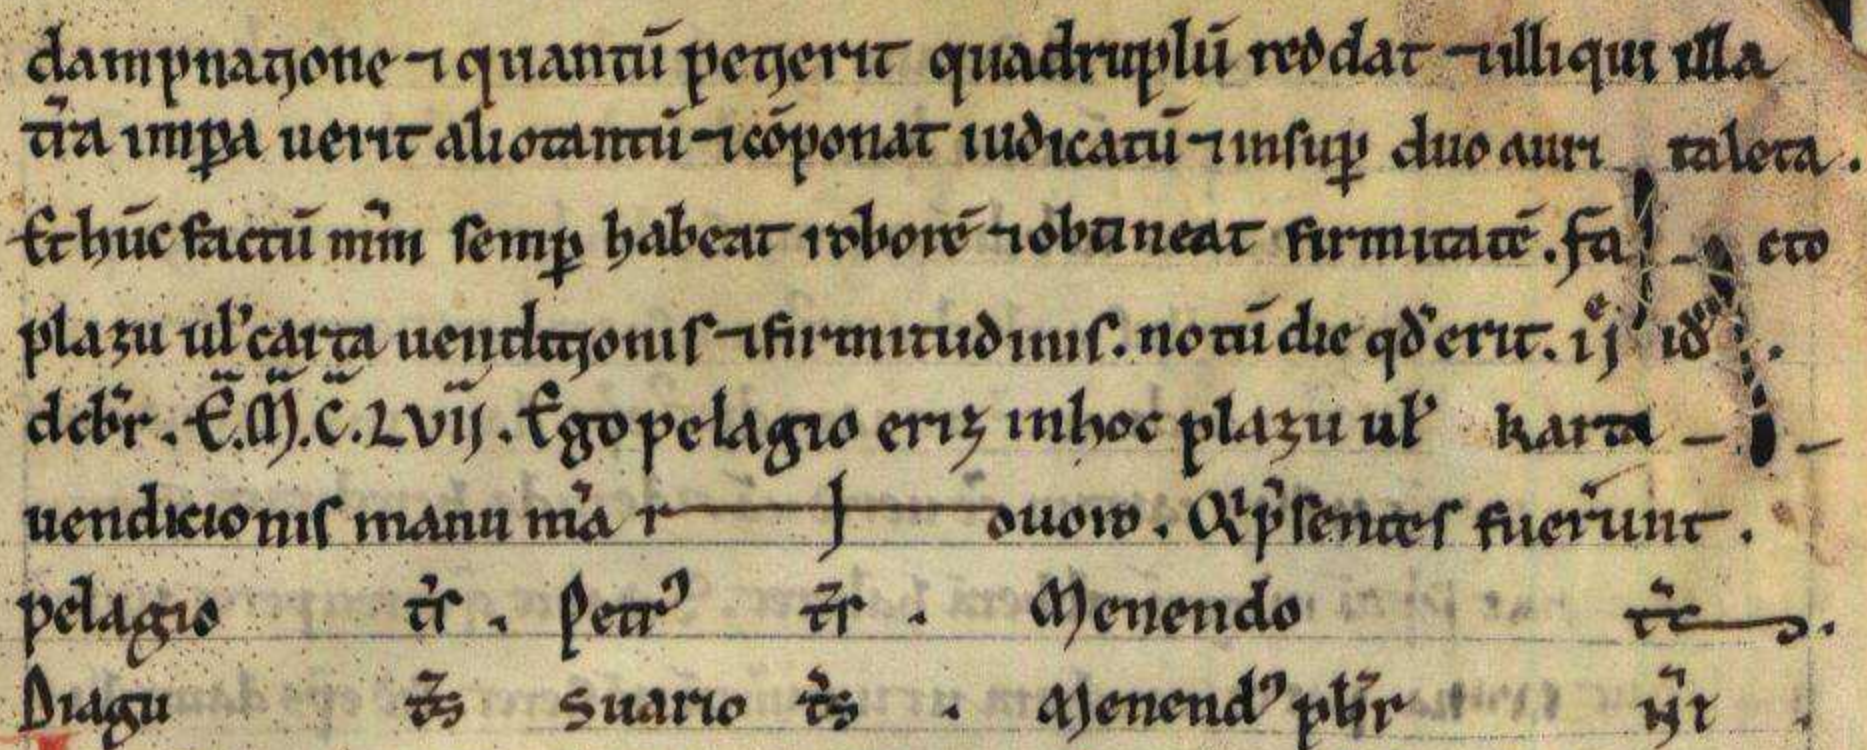 dampnaçione ⁊ quantū peçerit quadruplū reddat ⁊ illi qui illa
tr̄a inꝑauerit aliotantū ⁊ cōponat iudicatū ⁊ insuꝑ duo auri taleta.
Et hūc factū nr̄m semꝑ habeat roborē ⁊ obtineat firmitatē. fa cto
plazu ul' carta uendiçionis ⁊ firmitudinis. notū die qd' erit. ije id'
debr̄. E.M.C.LVIJ. Ego pelagio eriz in hoc plazu ul' karta
uendicionis manu m̄a r oboro. Qi p̄sentes fuer̄unt.
pelagio t̄s. Petrꝰ t̄s. Menendo t̄s.
Diagu t̄s Suario t̄s. Menendꝰ pbr̄ n̄t.